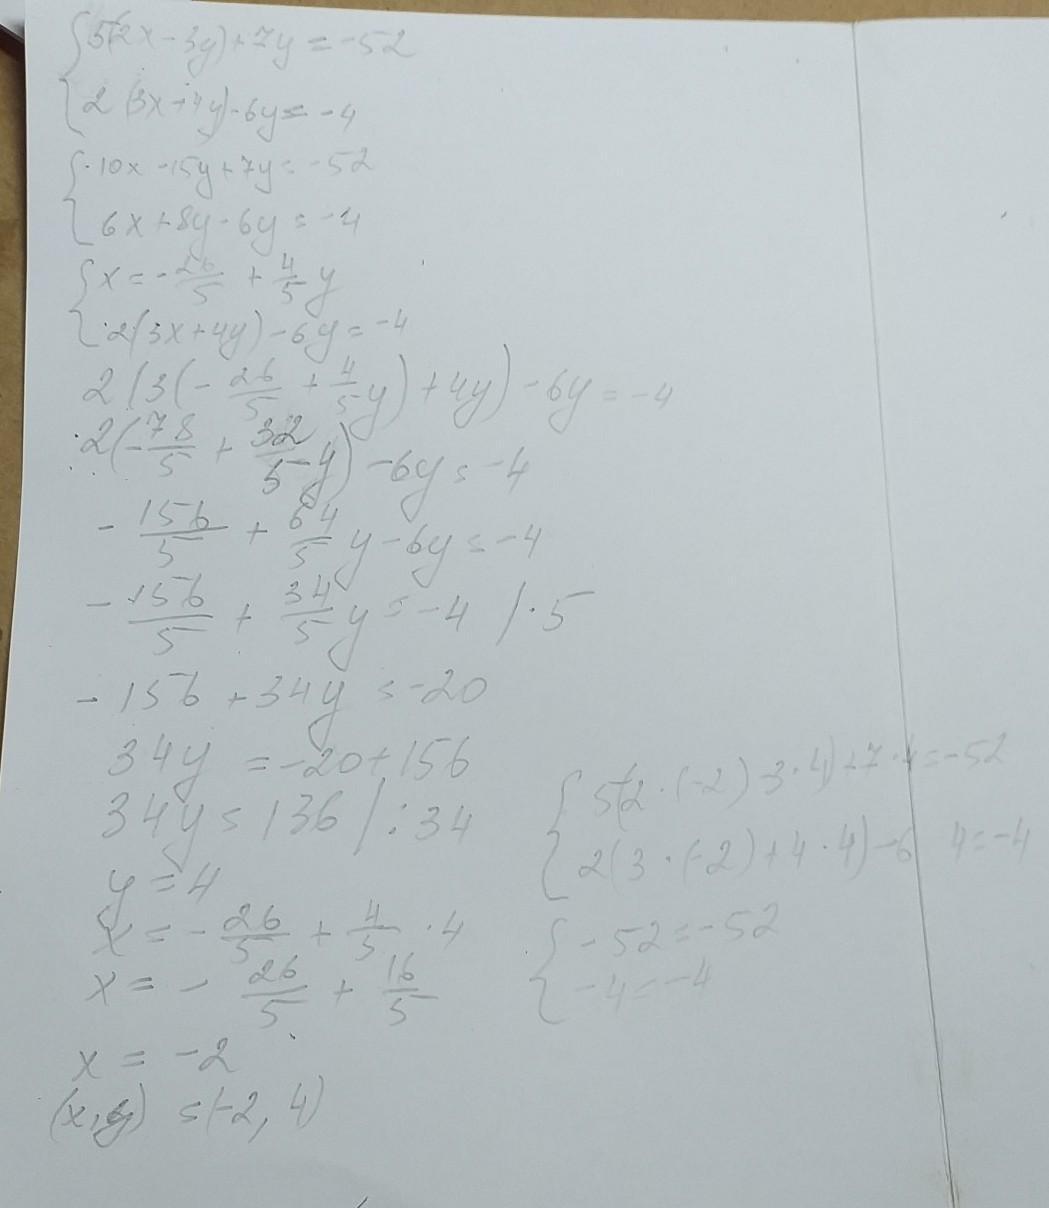 {5(2x - 3y) + 7y = -52
{2(3x + 4y) - 6y = -4
{10x - 15y + 7y = -52
{6x + 8y - 6y = -4
{x = - 26/5 + 4/5 y
{2(3x + 4y) - 6y = -4
2(3(- 26/5 + 4/5 y) + 4y) - 6y = -4
2(- 78/5 + 32/5 y) - 6y = -4
- 156/5 + 64/5 y - 6y = -4
- 156/5 + 34/5 y = -4 / · 5
- 156 + 34y = -20
34y = -20 + 156
34y = 136 / : 34
y = 4
x = - 26/5 + 4/5 · 4
x = - 26/5 + 16/5
x = -2
(x, y) = (-2, 4)
{5(2 · (-2) - 3 · 4) + 7 · 4 = -52
{2(3 · (-2) + 4 · 4) - 6 4 = -4
{-52 = -52
{-4 = -4